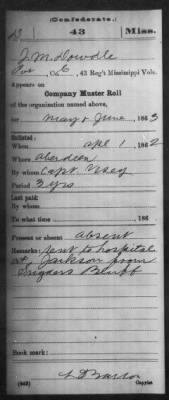 (Confederate.)
D 43 Miss.
J. M. Dowdle
Pvt, Co. C, 43 Reg't Mississippi Vols.
Appears on
Company Muster Roll
of the organization named above,
for May & June, 1863
Enlisted:
When Apl 1, 1862
Where Aberdeen
By whom Capt.
Period 3 yrs
Last paid:
By whom
To what time , 186
Present or absent absent
Remarks: Sent to hospital
at Jackson from
Snyders Bluff
Book mark:
(642) Copyist.